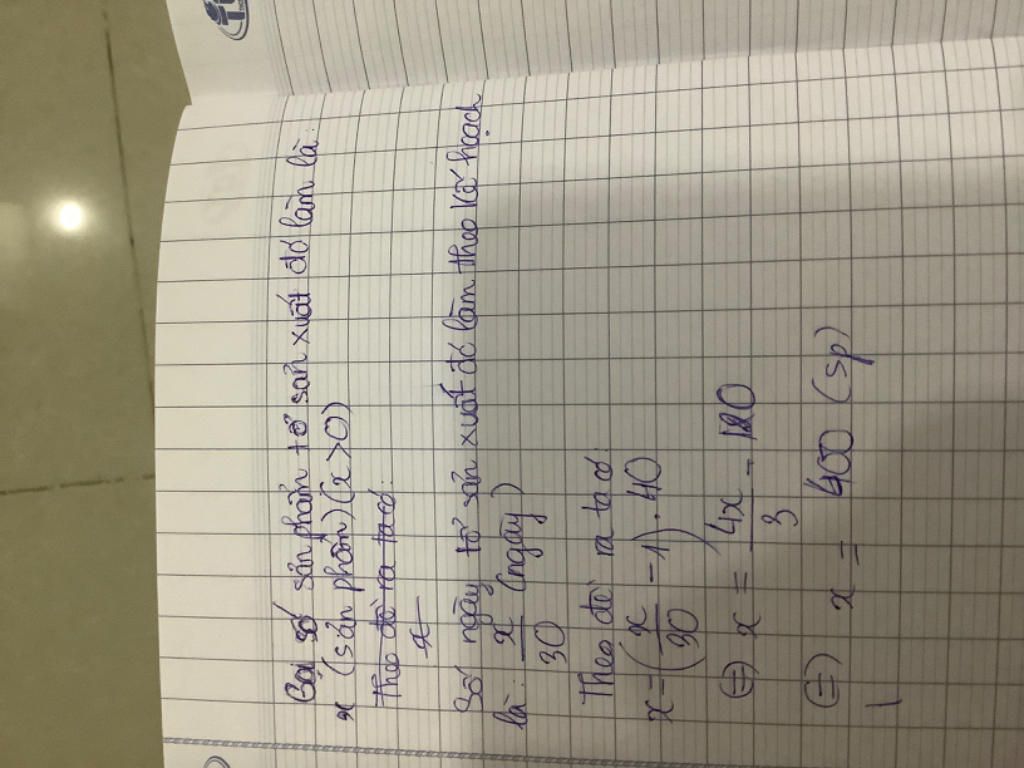 Gọi số sản phẩm tổ sản xuất đó làm là:
x (sản phẩm) (x>0)
Theo đề ra ta có:
x
Số ngày tổ sản xuất đó làm theo kế hoạch
là: x/30 (ngày)
Theo đề ra ta có:
x = (x/30 - 1) . 40
(=) x = 4x/3 -
(=) x = 400 (sp)